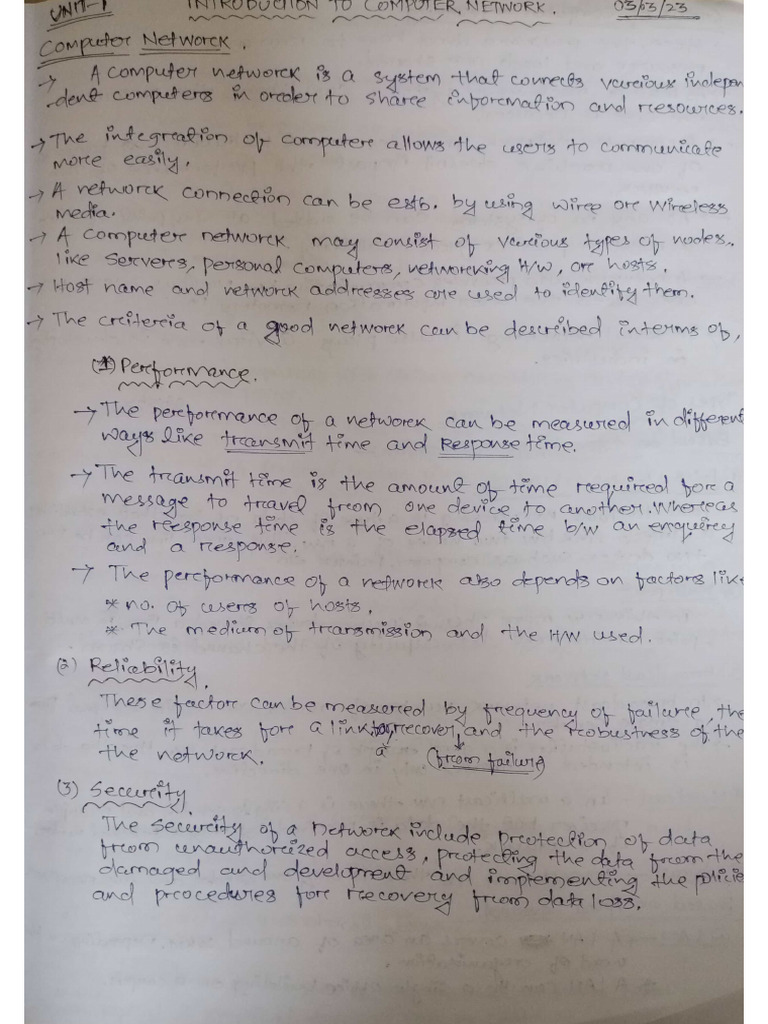 UNIT-1 INTRODUCTION TO COMPUTER NETWORK. 03/03/23
Computer Network.
→ A computer network is a system that connects various indepen
-dent computers in order to share information and resources.
→ The integration of computer allows the users to communicate
more easily.
→ A network connection can be estb. by using wire or wireless
media.
→ A computer network may consist of various types of nodes.
like servers, personal computers, networking H/W, or hosts.
→ Host name and network addresses are used to identify them.
→ The criteria of a good network can be described interms of,
(1) Performance.
→ The performance of a network can be measured in different
ways like transmit time and Response time.
→ The transmit time is the amount of time required for a
message to travel from one device to another. Whereas
the response time is the elapsed time b/w an enquiry
and a response.
→ The performance of a network also depends on factors like
* no. of users of hosts.
* The medium of transmission and the H/W used.
(2) Reliability.
These factor can be measured by frequency of failure, the
time it takes for a link recover, and the robustness of the
the network. (from failure)
(3) Security.
The security of a network include protection of data
from unauthorized access, protecting the data from the
damaged and development and implementing the policie
and procedures for recovery from data loss.